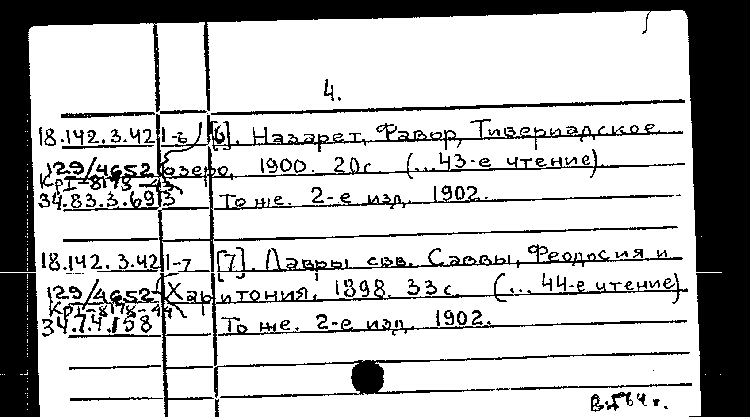 4.
18.142.3.42 1-6 [6]. Назарет, Фавор, Тивериадское
129/4652 озеро, 1900. 20с. (...43-е чтение)
КрI-8178-43
34.83.3.693 То же. 2-е изд. 1902.
18.142.3.42 1-7 [7]. Лавры свв. Саввы, Феодосия и
129/4652 Харитония. 1898. 33с. (... 44-е чтение)
КрI-8178-44
34.7.4.158 То же. 2-е изд. 1902.